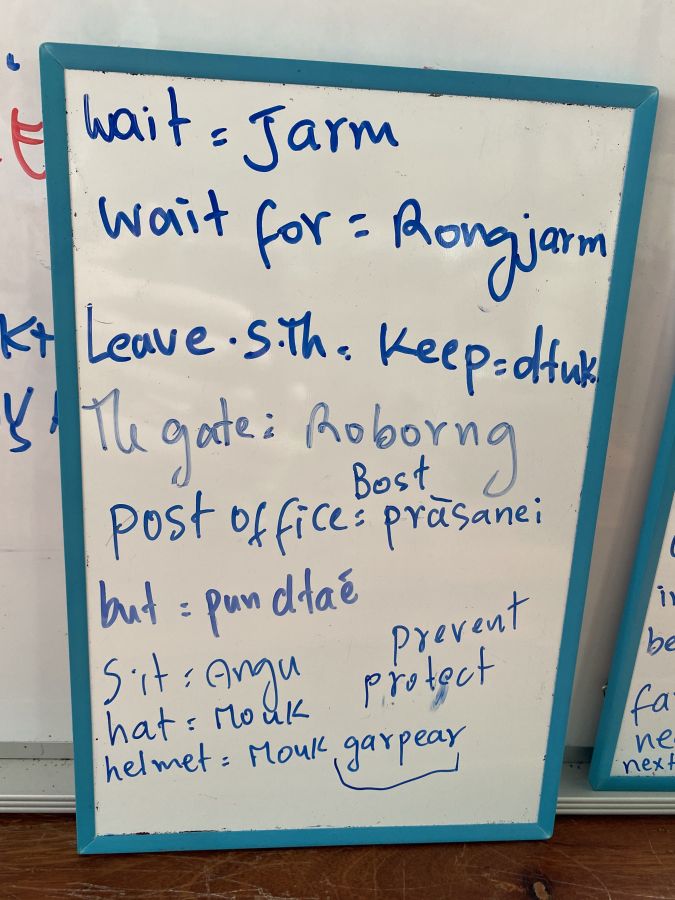 wait = Jarm
wait for = Rongjarm
Leave . s.th. Keep = dtuk
The gate : Roborng
Bost
post office : prāsanei
but = pun dtaé
Sit : Angu
prevent
protect
hat : Mouk
helmet = Mouk garpear
be
next